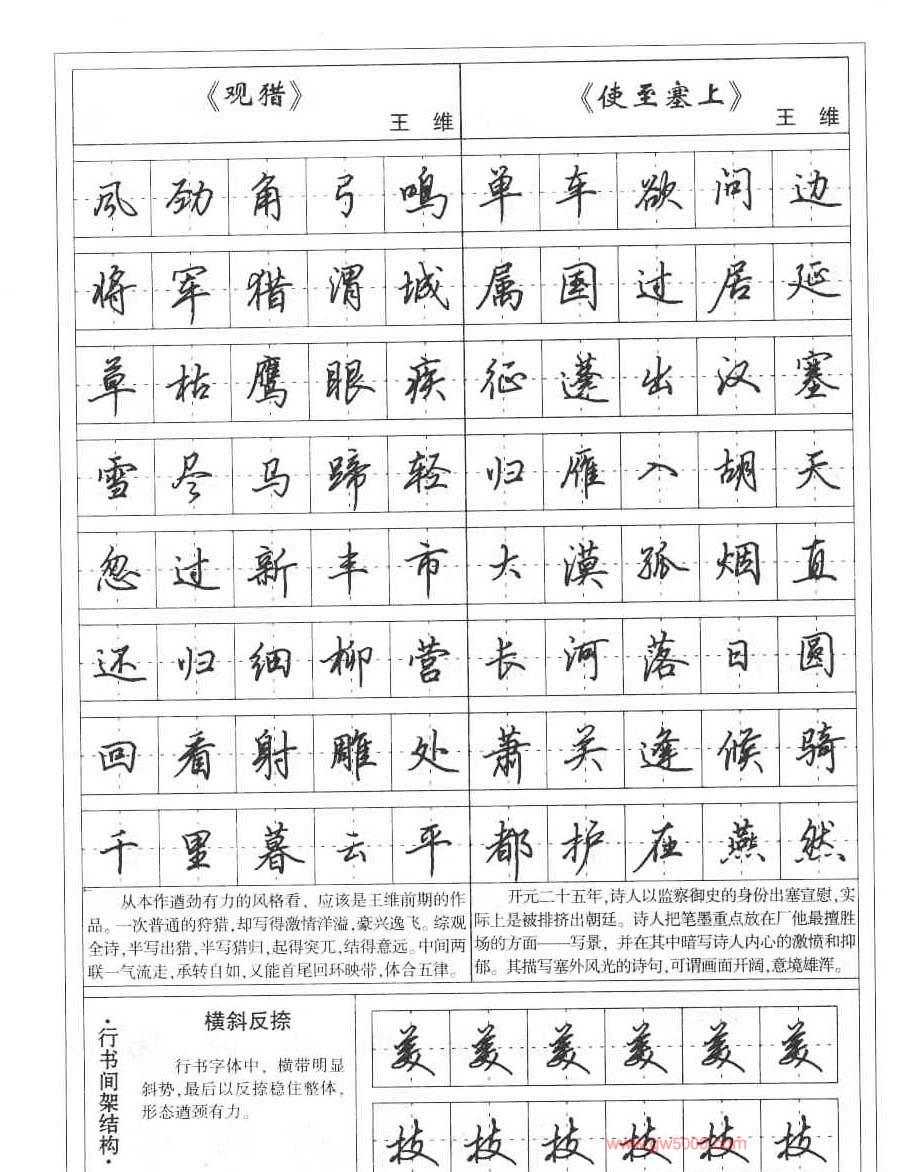 《观猎》
王 维
風劲角弓鸣
将军猎渭城
草枯鹰眼疾
雪尽马蹄轻
忽过新丰市
还归细柳营
回看射雕处
千里暮云平
从本作遒劲有力的风格看，应该是王维前期的作
品。一次普通的狩猎，却写得激情洋溢，豪兴逸飞。综观
全诗，半写出猎，半写猎归，起得突兀，结得意远。中间两
联一气流走，承转自如，又能首尾回环映带，体合五律。
《使至塞上》
王 维
单车欲问边
属国过居延
征蓬出汉塞
归雁入胡天
大漠孤烟直
长河落日圆
萧关逢候骑
都护在燕然
开元二十五年，诗人以监察御史的身份出塞宣慰，实
际上是被排挤出朝廷。诗人把笔墨重点放在厂他最擅胜
场的方面——写景，并在其中暗写诗人内心的激愤和抑
郁。其描写塞外风光的诗句，可谓画面开阔，意境雄浑。
·行书间架结构·
横斜反捺
行书字体中，横带明显
斜势，最后以反捺稳住整体，
形态遒颈有力。
美美美美美美
技技技技技技
www.yjw5000.com